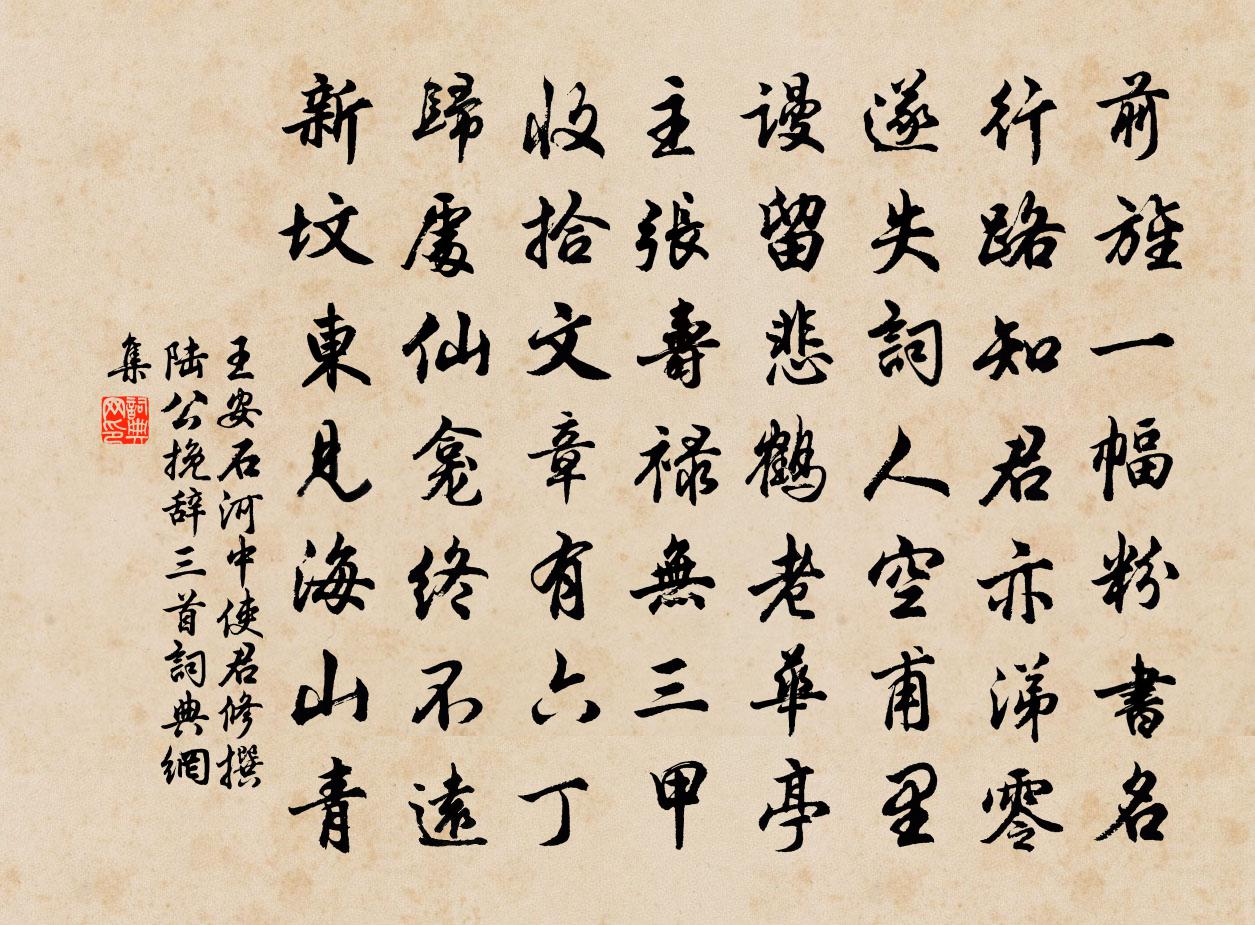 前旌一幅粉書名
行路知君亦涕零
遂失詞人空甫里
謾留悲鶴老華亭
主張壽禄無三甲
收拾文章有六丁
歸處仙龕終不遠
新墳東見海山青
王安石河中使君修撰
陆公挽辞三首詞典網
集
詞典
网印